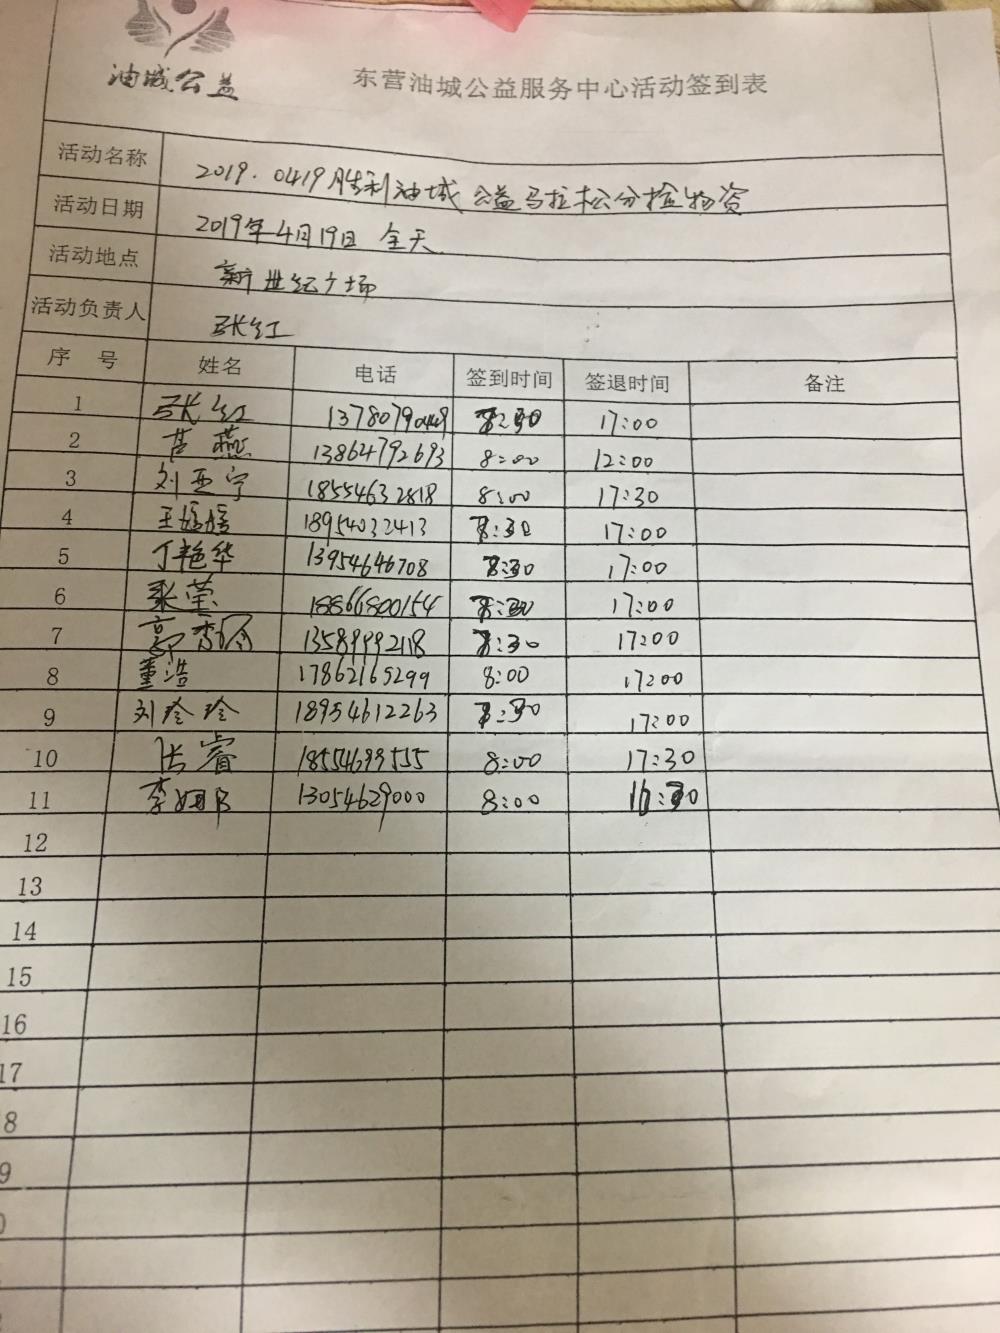 油城公益
东营油城公益服务中心活动签到表
活动名称 2019.0419胜利油城公益马拉松分捡物资
活动日期 2019年4月19日 全天
活动地点 新世纪广场
活动负责人 张红
序 号 姓名 电话 签到时间 签退时间 备注
1 张红 1378079 17:00
2 燕 13864792693 8:00 12:00
3 刘亚宁 18554632818 8:00 17:30
4 王婷婷 18954032413 8:30 17:00
5 丁艳华 13954646708 8:30 17:00
6 张莹 18866800154 8:30 17:00
7 13589992118 8:30 17:00
8 董浩 17862165299 8:00 17:00
9 刘玲玲 18954612263 8:30 17:00
10 张睿 18554699555 8:00 17:30
11 李娜 13054629000 8:00 16:30
12
13
14
15
16
17
8
9